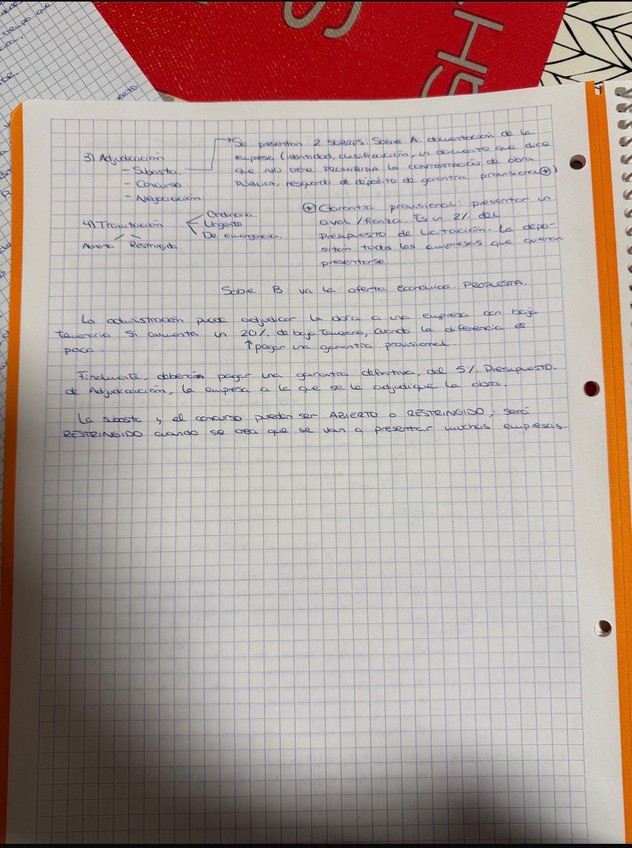 3) Adjudicación
- Subasta.
- Concurso
- Negociación
Se presentan 2 sobres. Sobre A. documentación de la
empresa (identidad, clasificación, un documento que dice
que NO tiene PROHIBIDA la contratación de obra
PÚBLICA, resguardo de depósito de garantía provisional ⊕)
4) Tramitación
Ordinaria
Urgente
De emergencia
Abierto Restringido
⊕ Garantía provisional: presentar un
aval/fianza. Es un 2% del
Presupuesto de Licitación. La depo-
sitan todas las empresas que quieran
presentarse.
Sobre B va la oferta económica. PROPUESTA.
La administración puede adjudicar la obra a una empresa con baja
temeraria si aumenta un 20% de baja temeraria, cuando la diferencia es
poca. ↑pagar una garantía provisional.
Finalmente, deberán pagar una garantía definitiva, del 5% Presupuesto
de Adjudicación, la empresa a la que se le adjudique la obra.
La subasta y el concurso pueden ser ABIERTO o RESTRINGIDO; será
RESTRINGIDO cuando se crea que se van a presentar muchas empresas.